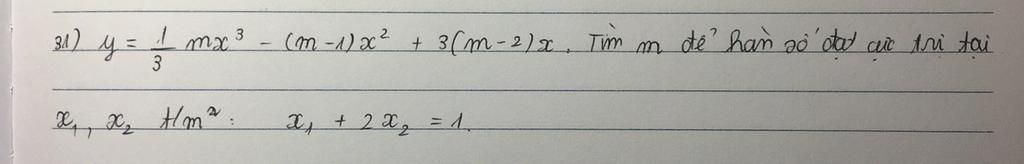 31) y = 1/3 mx³ - (m-1)x² + 3(m-2)x. Tìm m để hàm số đạt cực trị tại
x₁, x₂ t/m²: x₁ + 2x₂ = 1.